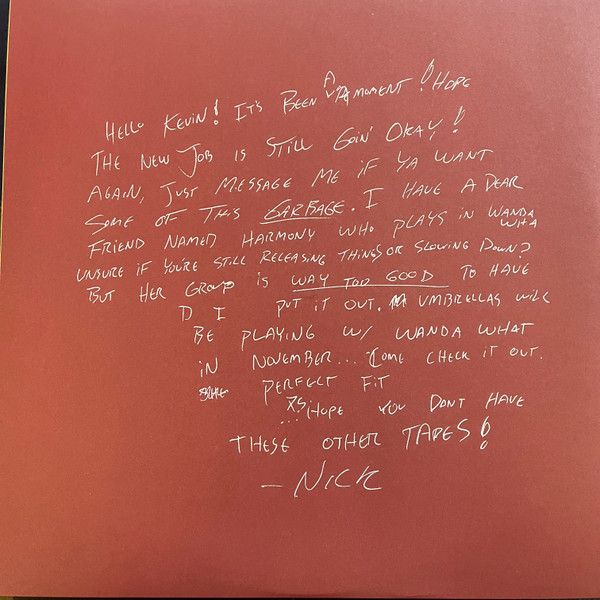 HELLO KEVIN! IT'S BEEN A MOMENT! HOPE
THE NEW JOB IS STILL GOIN' OKAY!
AGAIN, JUST MESSAGE ME IF YA WANT
SOME OF THIS GARBAGE. I HAVE A DEAR
FRIEND NAMED HARMONY WHO PLAYS IN WANDA
WHA
UNSURE IF YOU'RE STILL RELEASING THINGS OR SLOWING DOWN?
BUT HER GROUP IS WAY TOO GOOD TO HAVE
D I PUT IT OUT. UMBRELLAS WILL
BE PLAYING W/ WANDA WHAT
IN NOVEMBER... COME CHECK IT OUT.
PERFECT FIT
P.S. HOPE YOU DONT HAVE
...
THESE OTHER TAPES!
- NICK